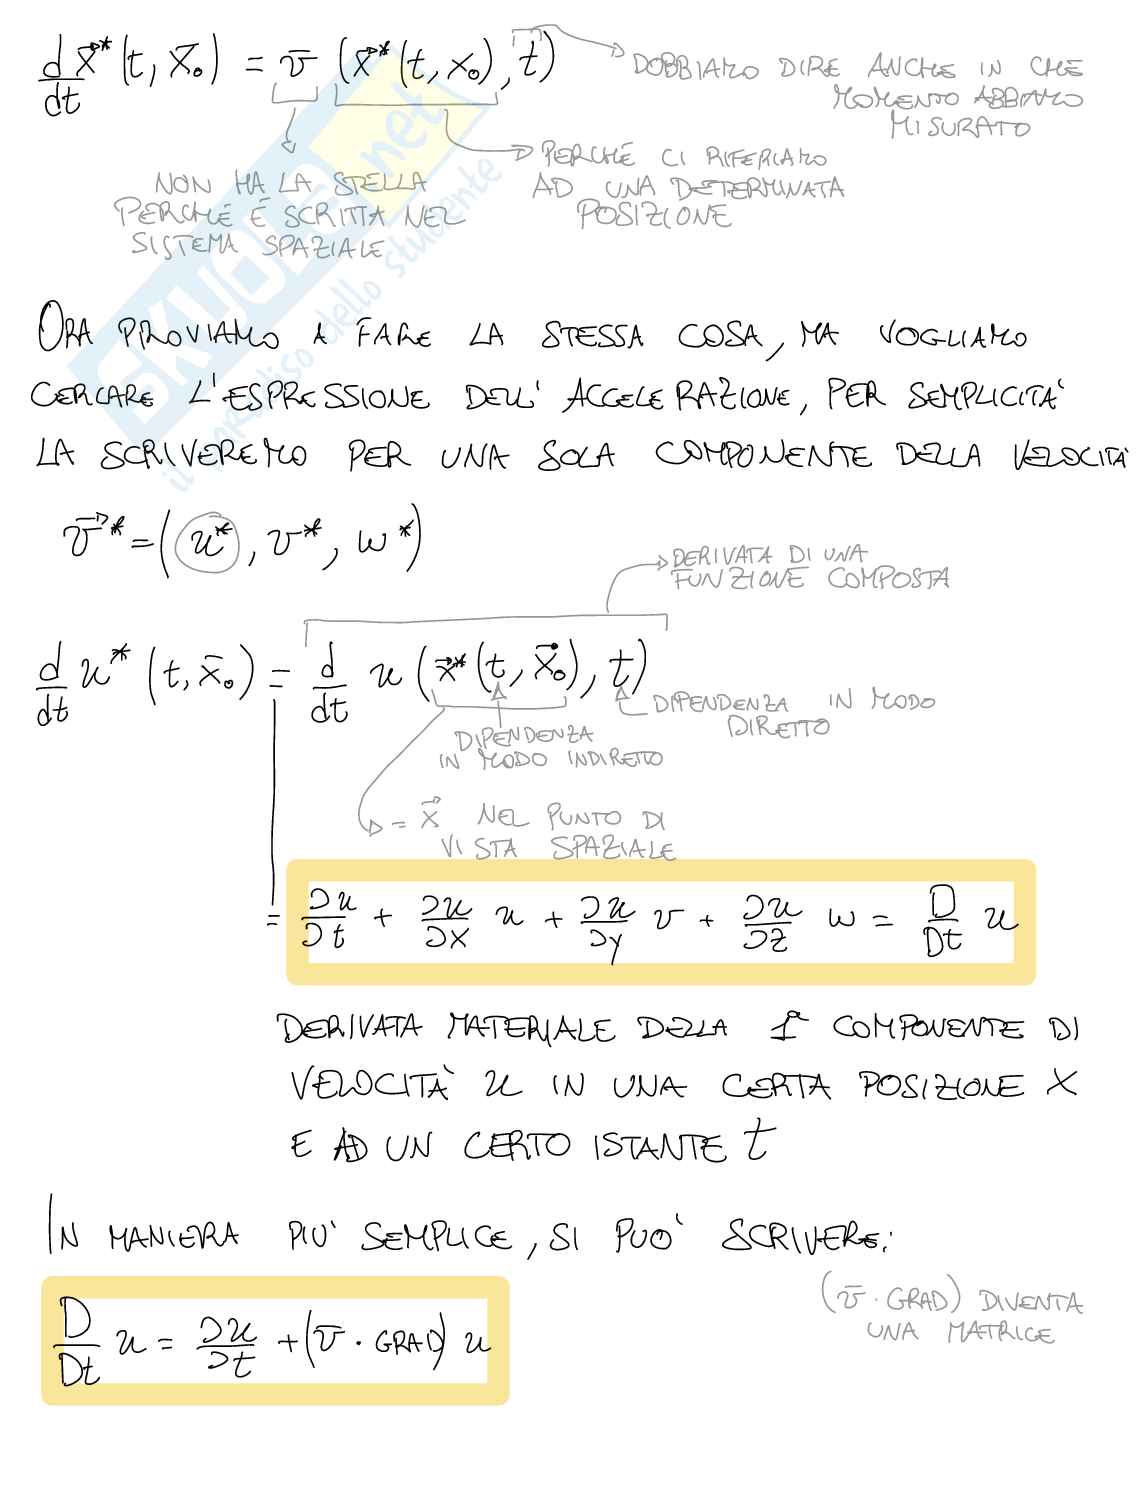 d/dt x⃗*(t, x̄₀) = v̄ (x⃗*(t, x₀), t)
DOBBIAMO DIRE ANCHE IN CHE
MOMENTO ABBIAMO
MISURATO
PERCHÉ CI RIFERIAMO
AD UNA DETERMINATA
POSIZIONE
NON HA LA STELLA
PERCHÉ È SCRITTA NEL
SISTEMA SPAZIALE
SKUOLA.net
il paradiso dello studente
ORA PROVIAMO A FARE LA STESSA COSA, MA VOGLIAMO
CERCARE L'ESPRESSIONE DELL'ACCELERAZIONE, PER SEMPLICITÀ
LA SCRIVEREMO PER UNA SOLA COMPONENTE DELLA VELOCITÀ
v⃗* = (u*, v*, w*)
DERIVATA DI UNA
FUNZIONE COMPOSTA
d/dt u*(t, x̄₀) = d/dt u (x⃗*(t, x⃗₀), t)
DIPENDENZA IN MODO
DIRETTO
DIPENDENZA
IN MODO INDIRETTO
= x⃗ NEL PUNTO DI
VISTA SPAZIALE
= ∂u/∂t + ∂u/∂x u + ∂u/∂y v + ∂u/∂z w = D/Dt u
DERIVATA MATERIALE DELLA 1ª COMPONENTE DI
VELOCITÀ u IN UNA CERTA POSIZIONE X
E AD UN CERTO ISTANTE t
IN MANIERA PIÙ SEMPLICE, SI PUÒ SCRIVERE:
D/Dt u = ∂u/∂t + (v̄ · GRAD) u
(v̄ · GRAD) DIVENTA
UNA MATRICE